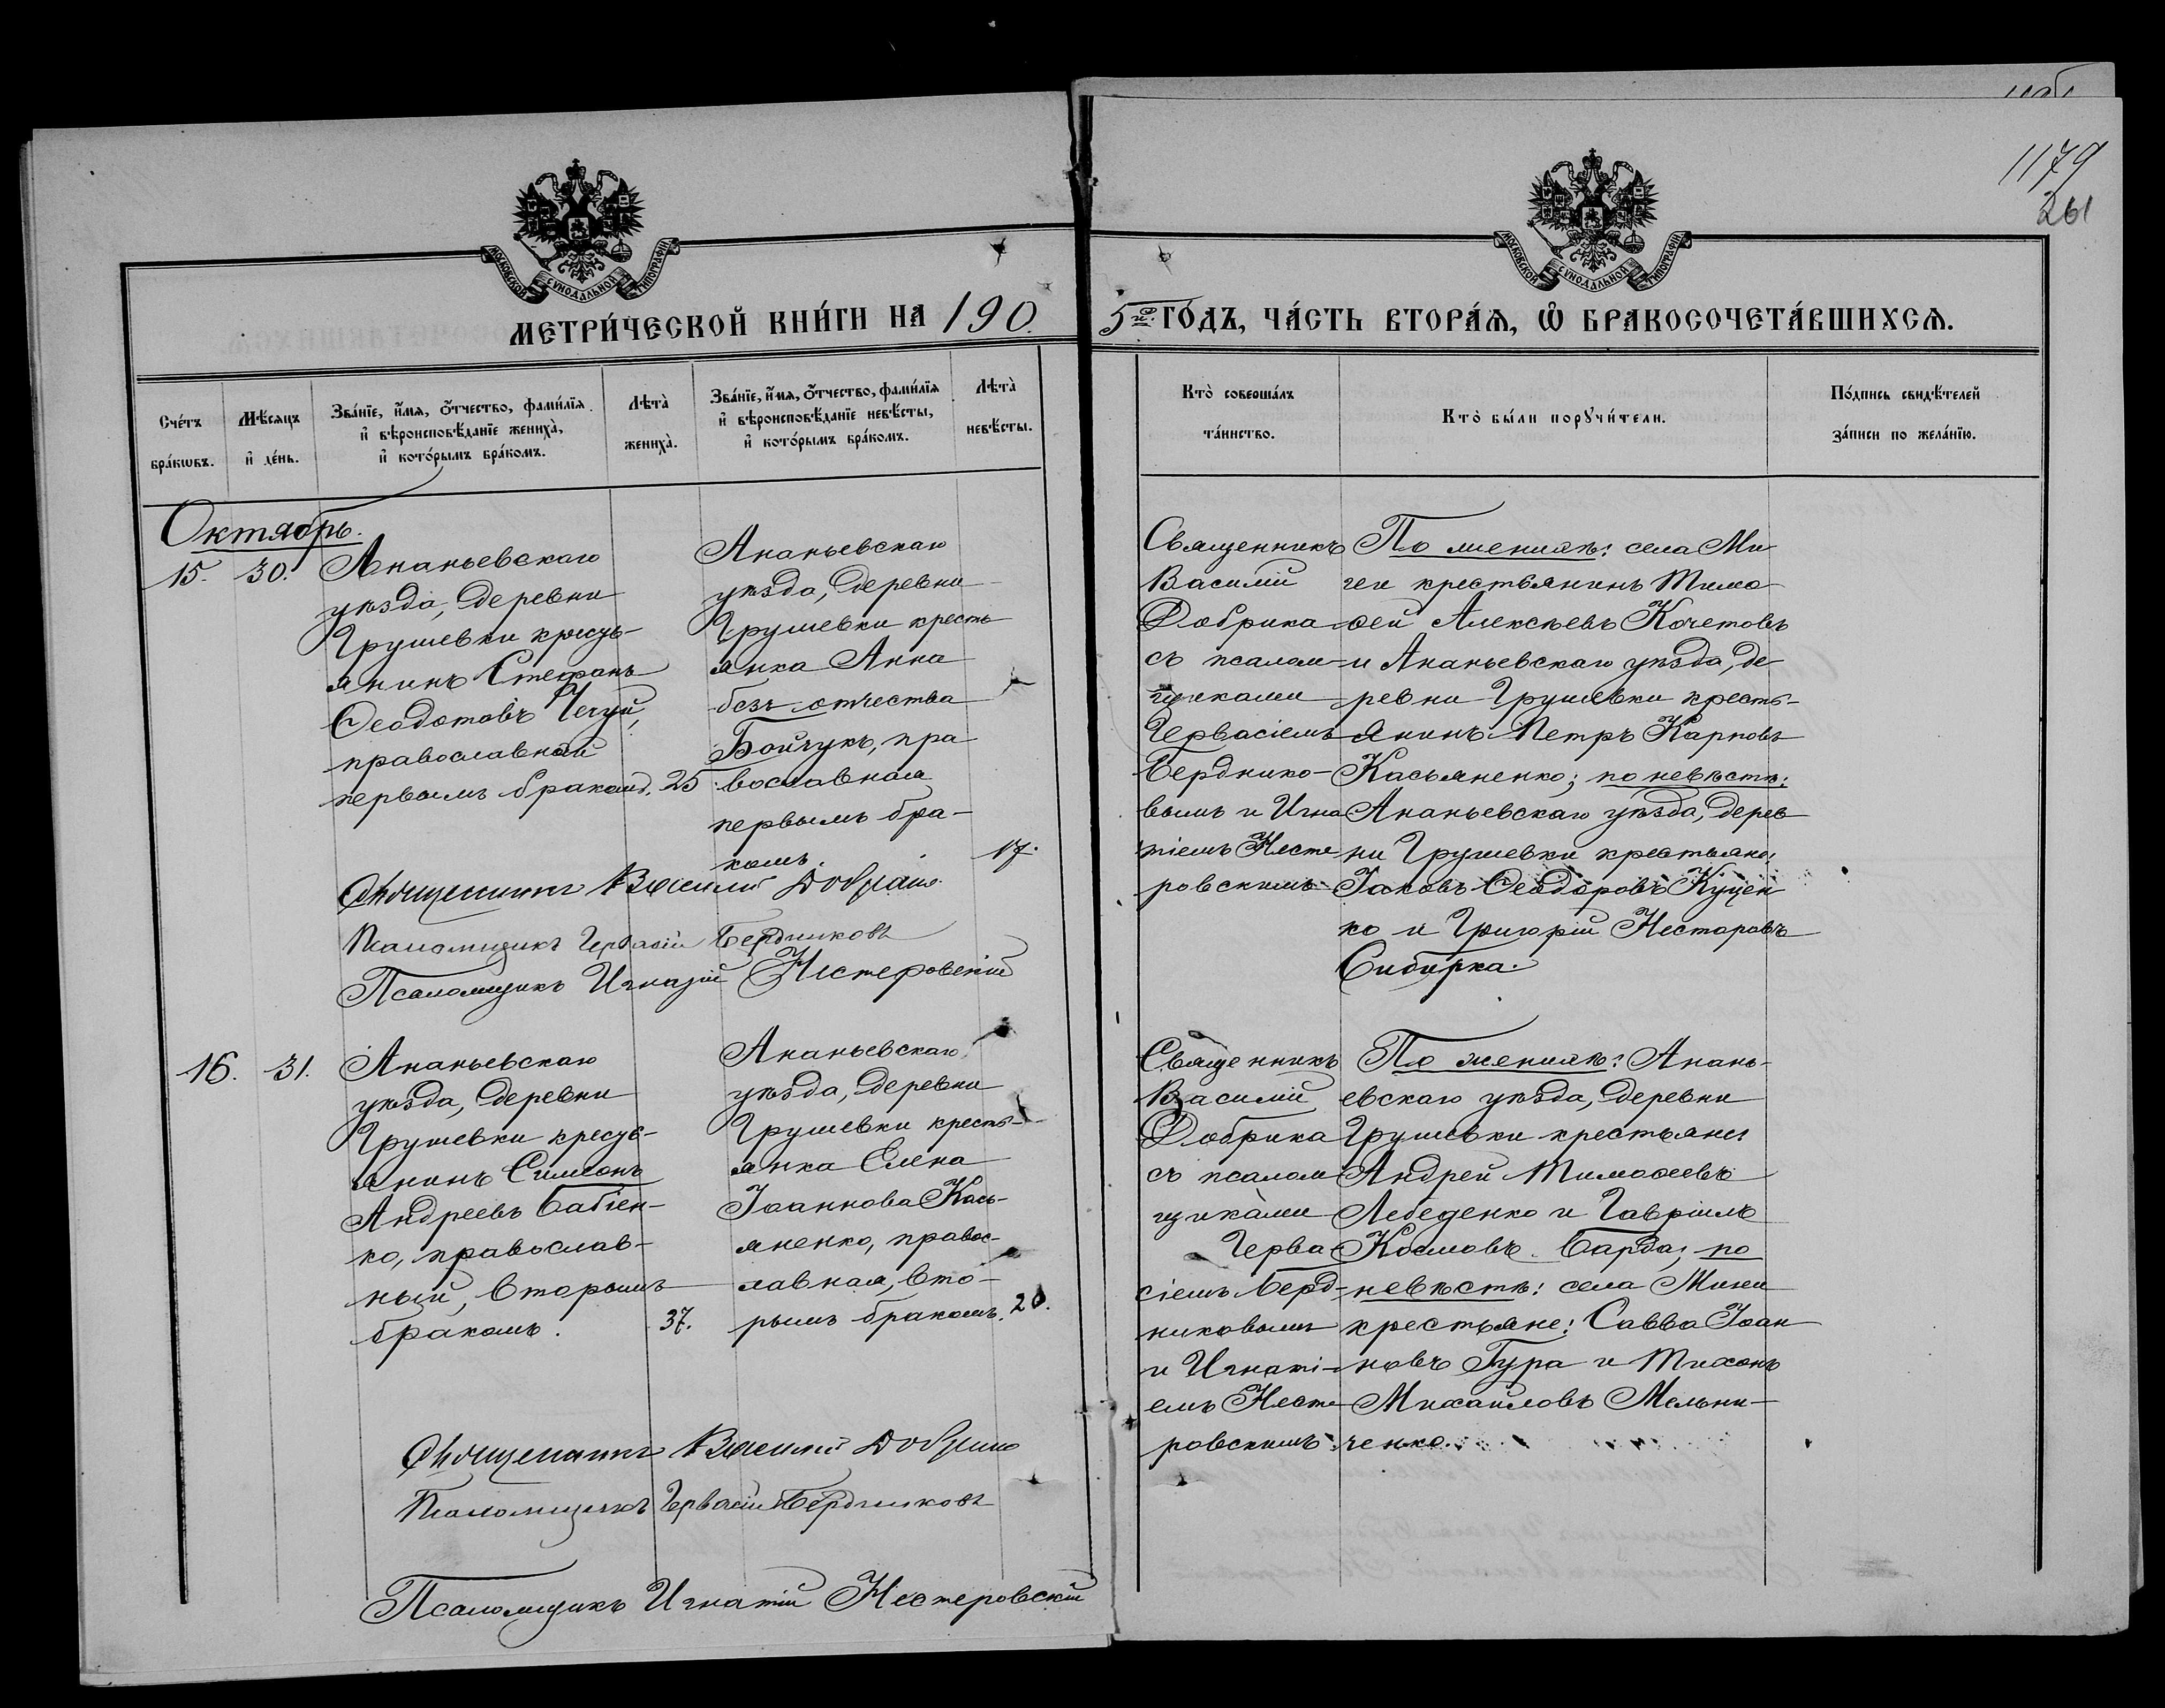 1179
261
МОСКОВСКОЙ СѴНОДАЛЬНОЙ ТИПОГРАФІИ
МОСКОВСКОЙ СѴНОДАЛЬНОЙ ТИПОГРАФІИ
МЕТРИ́ЧЕСКОЙ КНИ́ГИ НА 190
5го ГО́ДЪ, ЧА́СТЬ ВТОРА́Ѧ, Ѡ҆ БРАКОСОЧЕТА́ВШИХСѦ.
Сче́тъ бра́кѡвъ.
Мѣ́сѧцъ и҆ де́нь.
Зва́нїе, и҆́мѧ, ѻ҆́тчество, фами́лїѧ и҆ вѣроисповѣ́данїе жениха̀, и҆ кото́рымъ бра́комъ.
Лѣ́та̀ жениха̀.
Зва́нїе, и҆́мѧ, ѻ҆́тчество, фами́лїѧ и҆ вѣроисповѣ́данїе невѣ́сты, и҆ кото́рымъ бра́комъ.
Лѣ́та̀ невѣ́сты.
Кто̀ соверша́лъ та́инство.
Кто̀ бы́ли порꙋчи́тели.
По́дпись свидѣ́телей за́писи по жела́нїю.
Октябрь.
15. 30.
Ананьевскаго
уѣзда, деревни
Грушевки кресть-
янинъ Стефанъ
Ѳеодотовъ Чечуй,
православный
первымъ бракомъ. 25
Ананьевскаго
уѣзда, деревни
Грушевки кресть
янка Анна
безъ отчества
Бойчукъ, пра
вославная
первымъ бра-
комъ. 17.
Священникъ
Василій
Добрика
съ псалом-
щиками
Гервасіемъ
Берднико-
вымъ и Игна
тіемъ Несте
ровскимъ
По женихѣ: села Ми
геи крестьянинъ Тимо
ѳей Алексѣевъ Кочетовъ
и Ананьевскаго уѣзда, де
ревни Грушевки кресть-
янинъ Петръ Карповъ
Касьяненко; по невѣстѣ:
Ананьевскаго уѣзда, дерев
ни Грушевки крестьяне:
Іаковъ Ѳеодоровъ Куцен
ко и Григорій Несторовъ
Сибирка.
Священникъ Василій Добрика
Псаломщикъ Гервасій Бердниковъ
Псаломщикъ Игнатій Нестеровскій
16. 31.
Ананьевскаго
уѣзда, деревни
Грушевки кресть-
янинъ Симеонъ
Андреевъ Бабіен-
ко, православ-
ный, вторымъ
бракомъ. 37.
Ананьевскаго
уѣзда, деревни
Грушевки кресть-
янка Елена
Іоаннова Кась-
яненко, правос-
лавная, вто-
рымъ бракомъ. 20.
Священникъ
Василій
Добрика
съ псалом
щиками
Герва-
сіемъ Берд-
никовымъ
и Игнаті-
емъ Несте-
ровскимъ
По женихѣ: Анань-
евскаго уѣзда, деревни
Грушевки крестьяне
Андрей Тимоѳеевъ
Лебеденко и Гавріилъ
Космовъ Барда; по
невѣстѣ: села Мигеи
крестьяне: Савва Іоан
новъ Гура и Тихонъ
Михаиловъ Мельни-
ченко.
Священникъ Василій Добрика
Псаломщикъ Гервасій Бердниковъ
Псаломщикъ Игнатій Нестеровскій